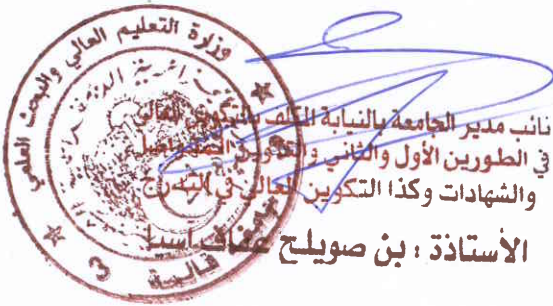 وزارة التعليم العالي والبحث العلمي
قالمة
3
نائب مدير الجامعة بالنيابة المكلف بالتكوين العالي
في الطورين الأول والثاني والتكوين المتواصل
والشهادات وكذا التكوين العالي في التدرج
الأستاذة : بن صويلح عفاف أسيا